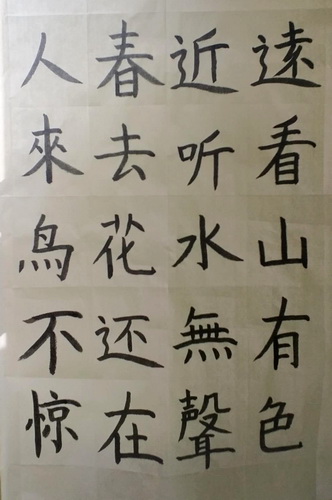 遠看山有色
近听水無聲
春去花还在
人來鳥不惊